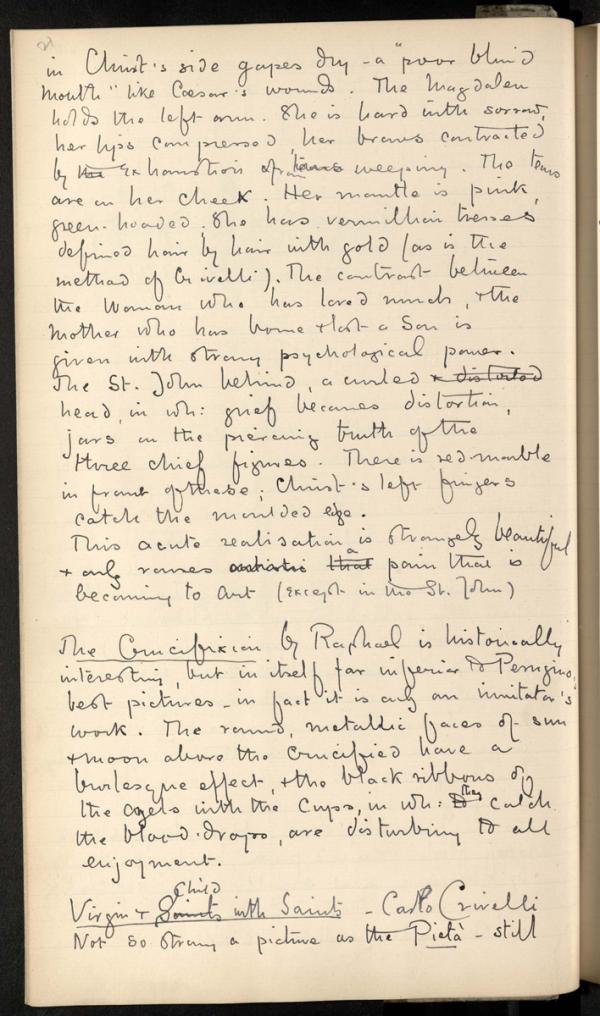 21
in Christ's side gapes dry - a "poor blind
mouth" like Cæsar's wounds. The Magdalen
holds the left arm. She is hard with sorrow,
her lips compressed, her brows contracted
by the exhaustion of from tears weeping. The tears
are on her cheek. Her mantle is pink,
green-hooded. She has vermillion tresses
defined hair by hair with gold (as is the
method of Crivelli). The contrast between
the Woman who has loved much, & the
Mother who has borne & lost a Son is
given with strong psychological power.
The St. John behind, a curled & distorted
head, in wh: grief becomes distortion,
jars on the piercing truth of the
three chief figures. There is red-marble
in front of these; Christ's left fingers
catch the moulded edge.
This acute realisation is strangely beautiful
& only rouses artistic that a pain that is
becoming to art (except in the St. John)
The Crucifixion by Raphael is historically
interesting, but in itself far inferior to Perugino's
best pictures - in fact it is only an imitator's
work. The round, metallic faces of sun
& moon above the Crucified have a
burlesque effect, & the black ribbons of
the angels with the cups, in wh: they catch
the blood-drops, are disturbing to all
enjoyment.
Child
Virgin & Saints with Saints - Carlo Crivelli
Not so strong a picture as the Pietà - still